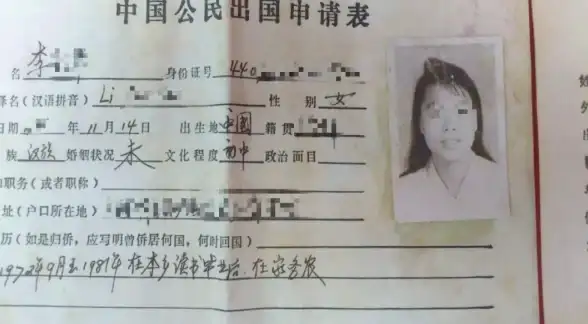 中国公民出国申请表
名 李 身份证号 440
译名(汉语拼音) Li 性别 女
日期 年 11 月 14 日 出生地 中国 籍贯
族 汉族 婚姻状况 未 文化程度 初中 政治面目
职务(或者职称)
址(户口所在地)
历(如是归侨,应写明曾侨居何国,何时回国)
1972年9月至1981年在本乡读书毕业后,在家务农